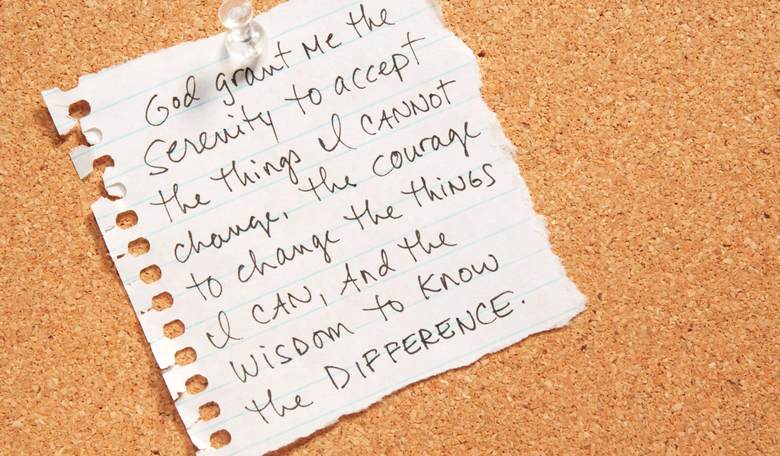 God grant Me the
Serenity to accept
the things I CANNOT
change, the courage
to change the tHINGS
I CAN, And the
WISDOM to KNOW
the DIFFERENCE.